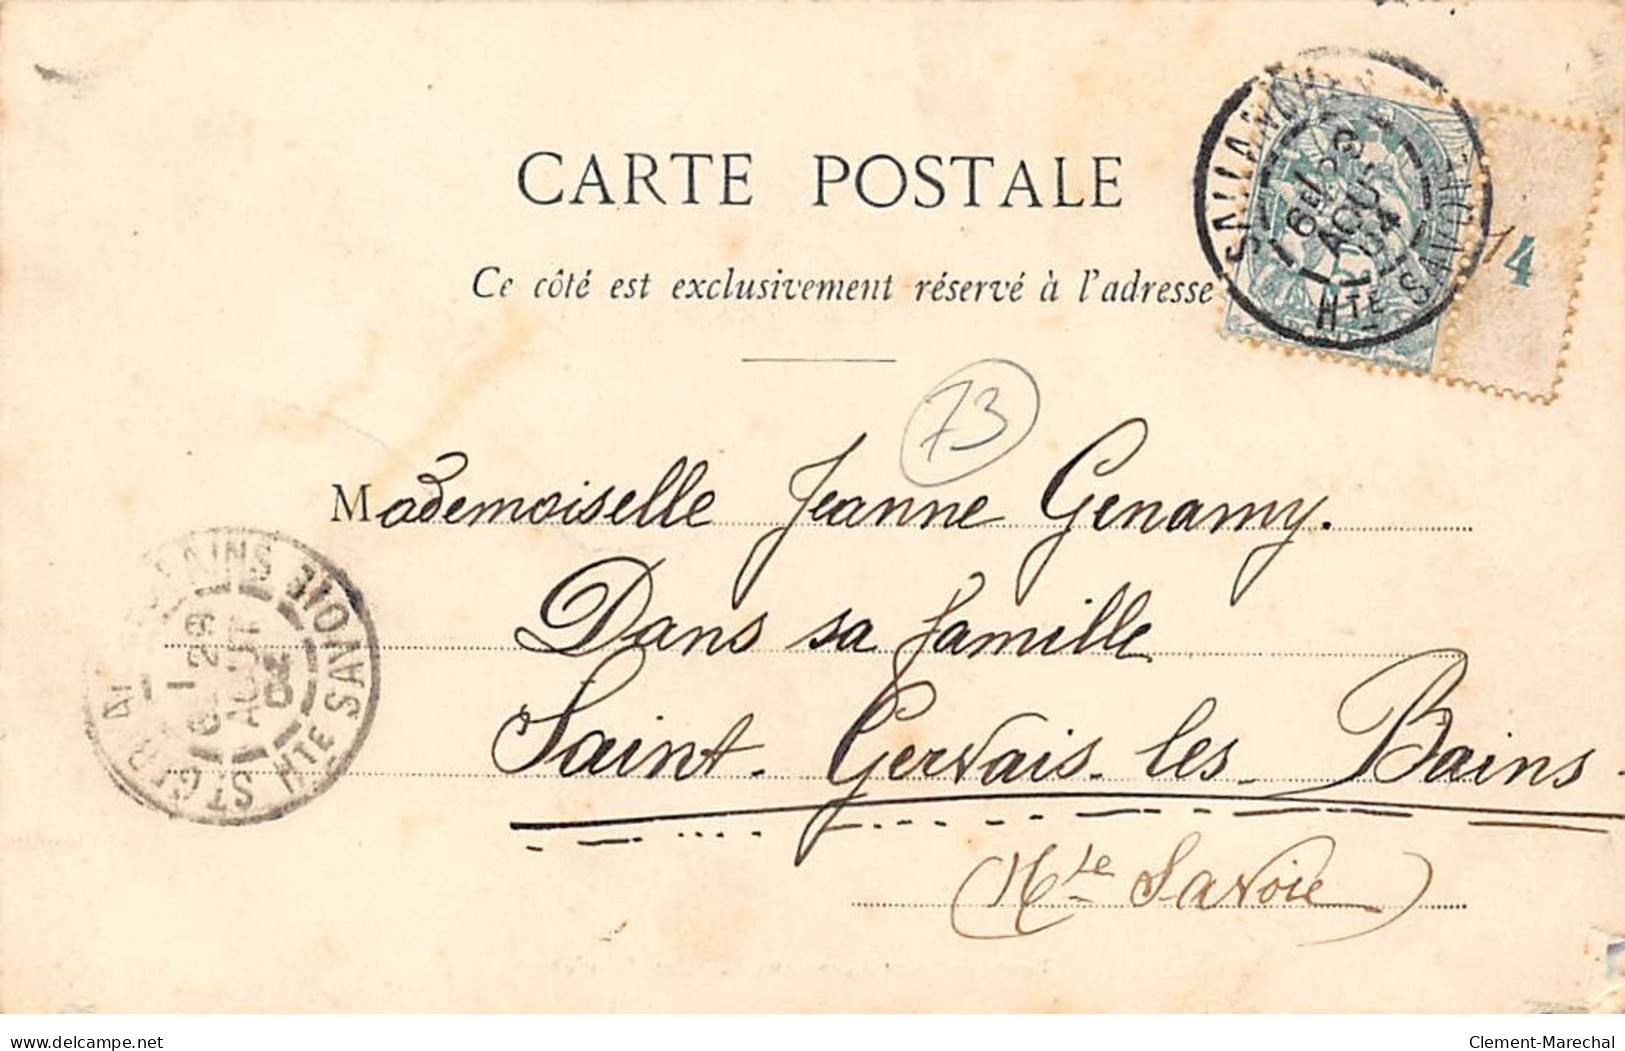 CARTE POSTALE
Ce côté est exclusivement réservé à l'adresse
SALLANCHES
6E/ 28
AOUT
04
HTE SAVOIE
4
73
Mademoiselle Jeanne Genamy.
Dans sa famille
Saint-Gervais-les-Bains-
(Hte Savoie)
BAINS HTE SAVOIE
28
AOUT
04
delcampe.net
Clement-Marechal